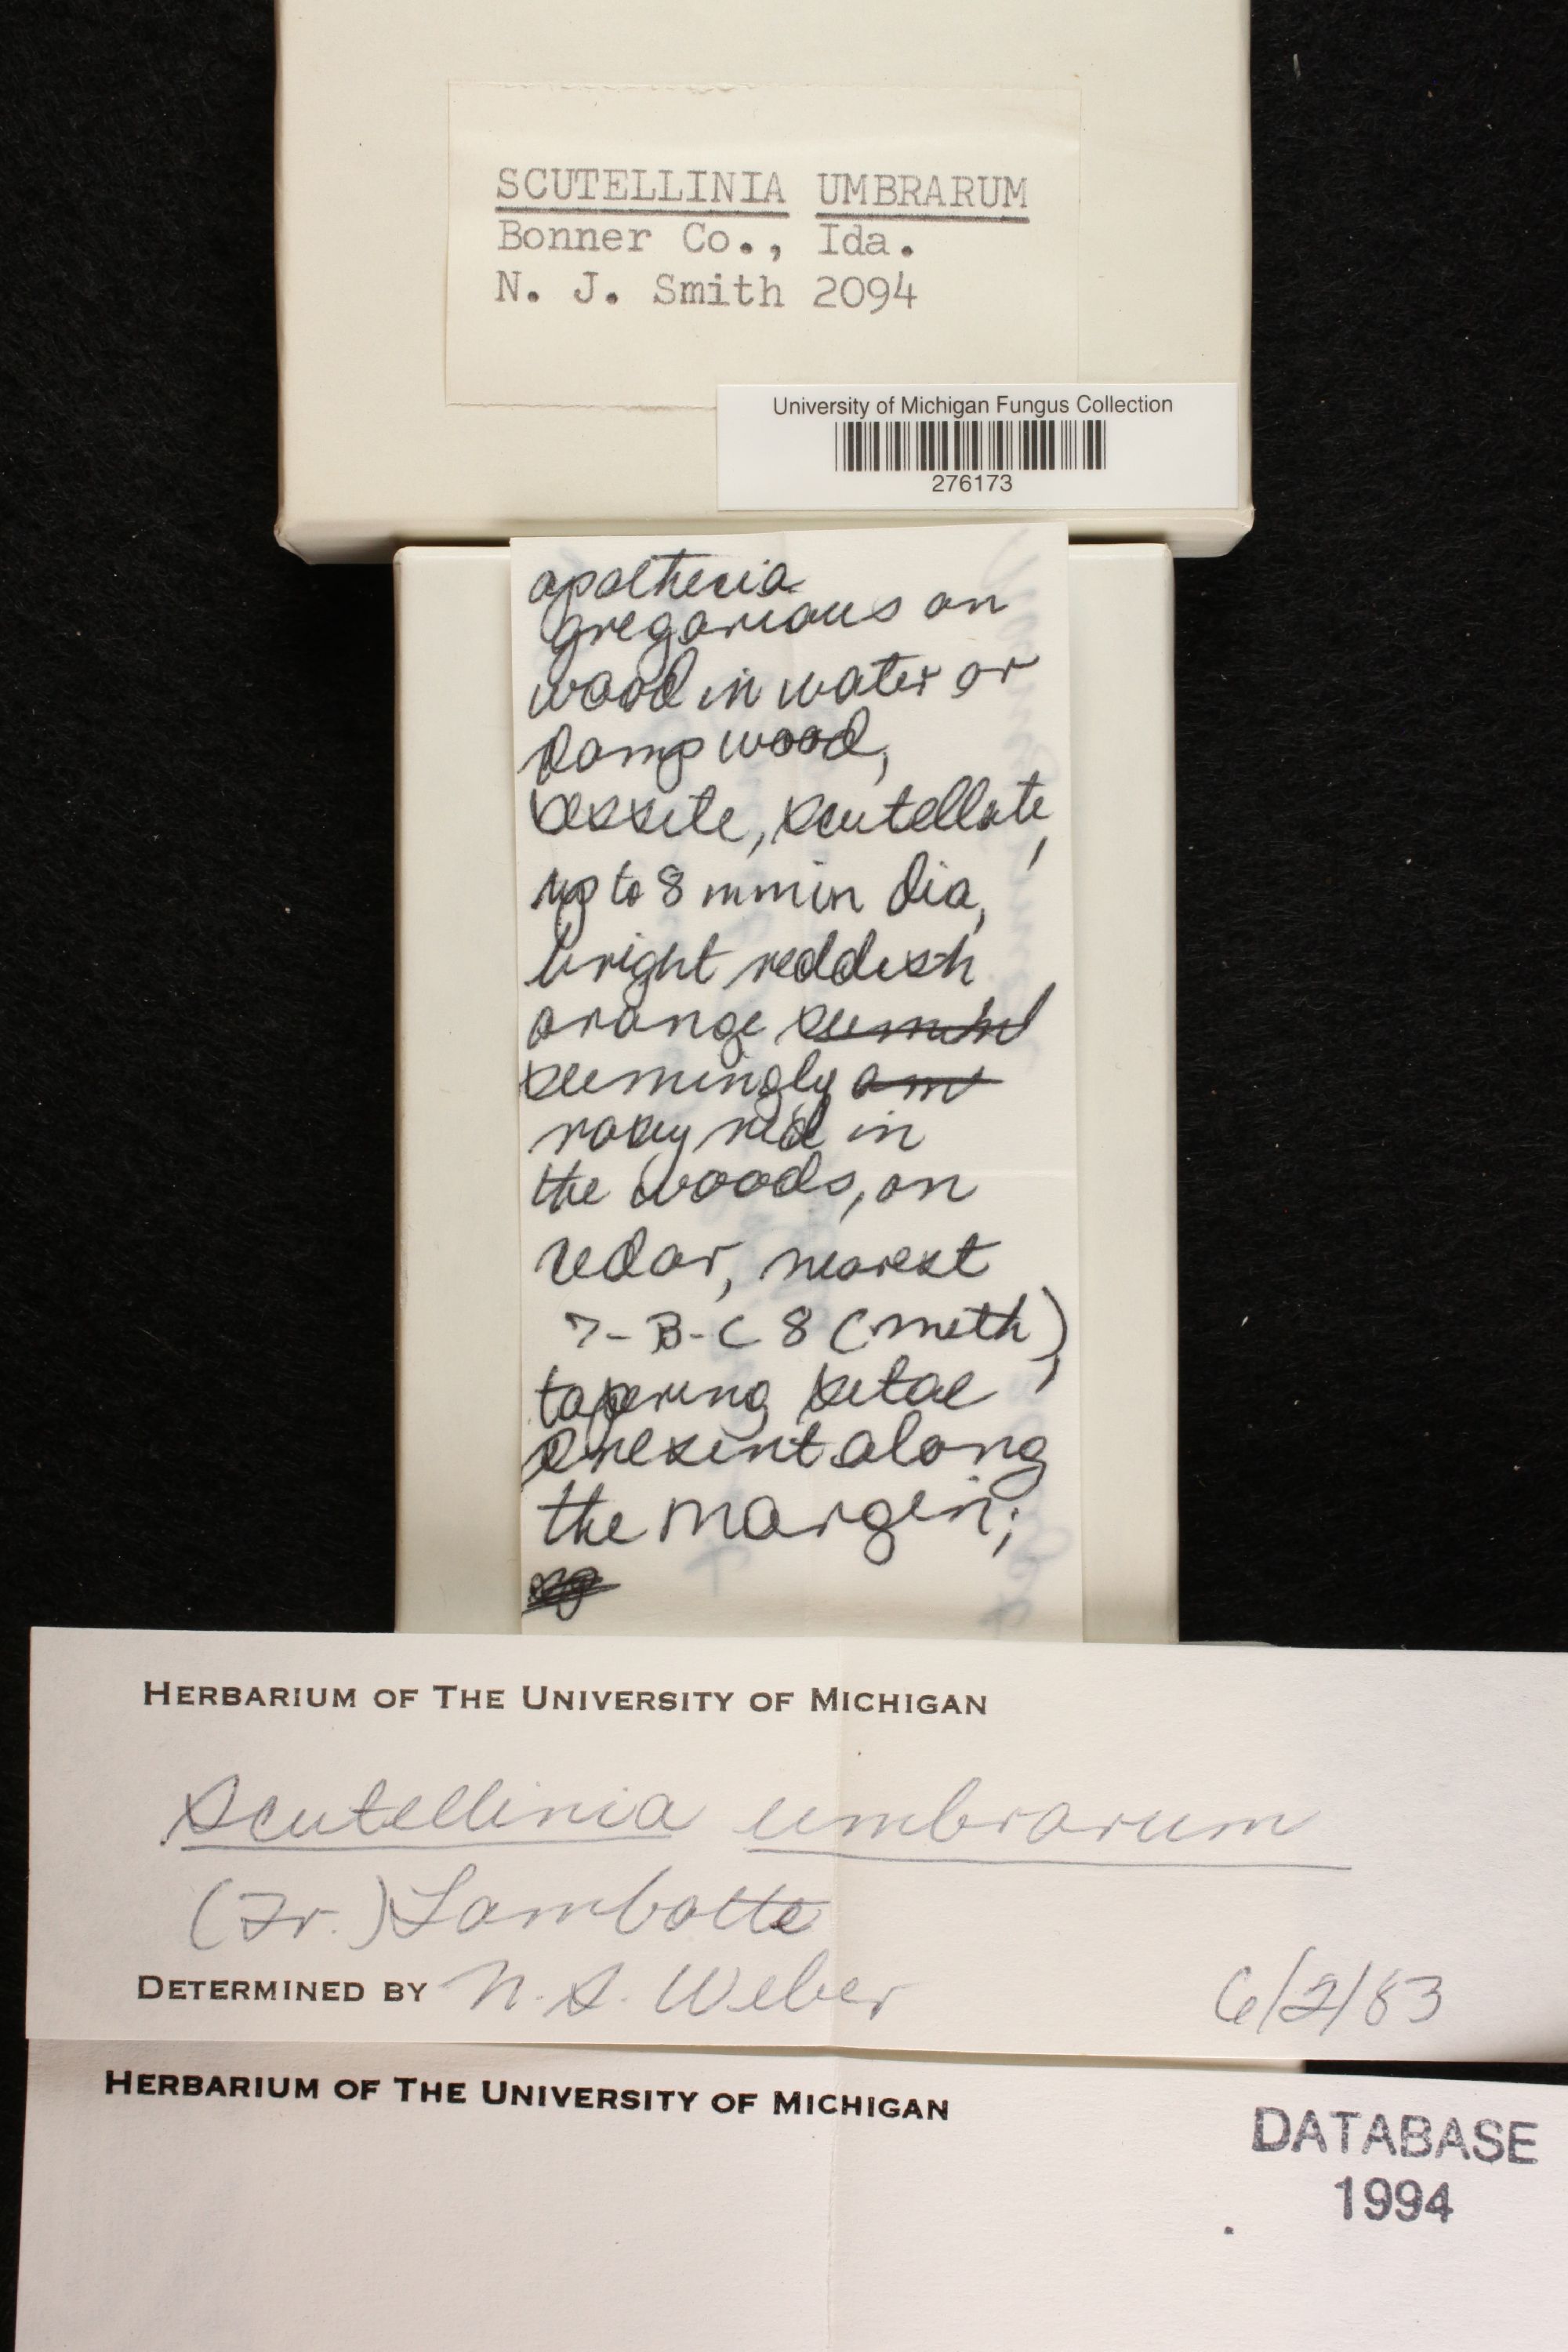 SCUTELLINIA UMBRARUM
Bonner Co., Ida.
N. J. Smith 2094
University of Michigan Fungus Collection
276173
apothecia
gregarious on
wood in water or
damp wood,
sessile, scutellate,
up to 8 mm in dia,
bright reddish
orange
seemingly
rosey red in
the woods, on
cedar, nearest
7-B-C 8 (meth),
tapering setae
present along
the margin;
HERBARIUM OF THE UNIVERSITY OF MICHIGAN
Scutellinia umbrarum
(Fr.) Lambotte
DETERMINED BY N. S. Weber 6/2/83
HERBARIUM OF THE UNIVERSITY OF MICHIGAN
DATABASE
1994